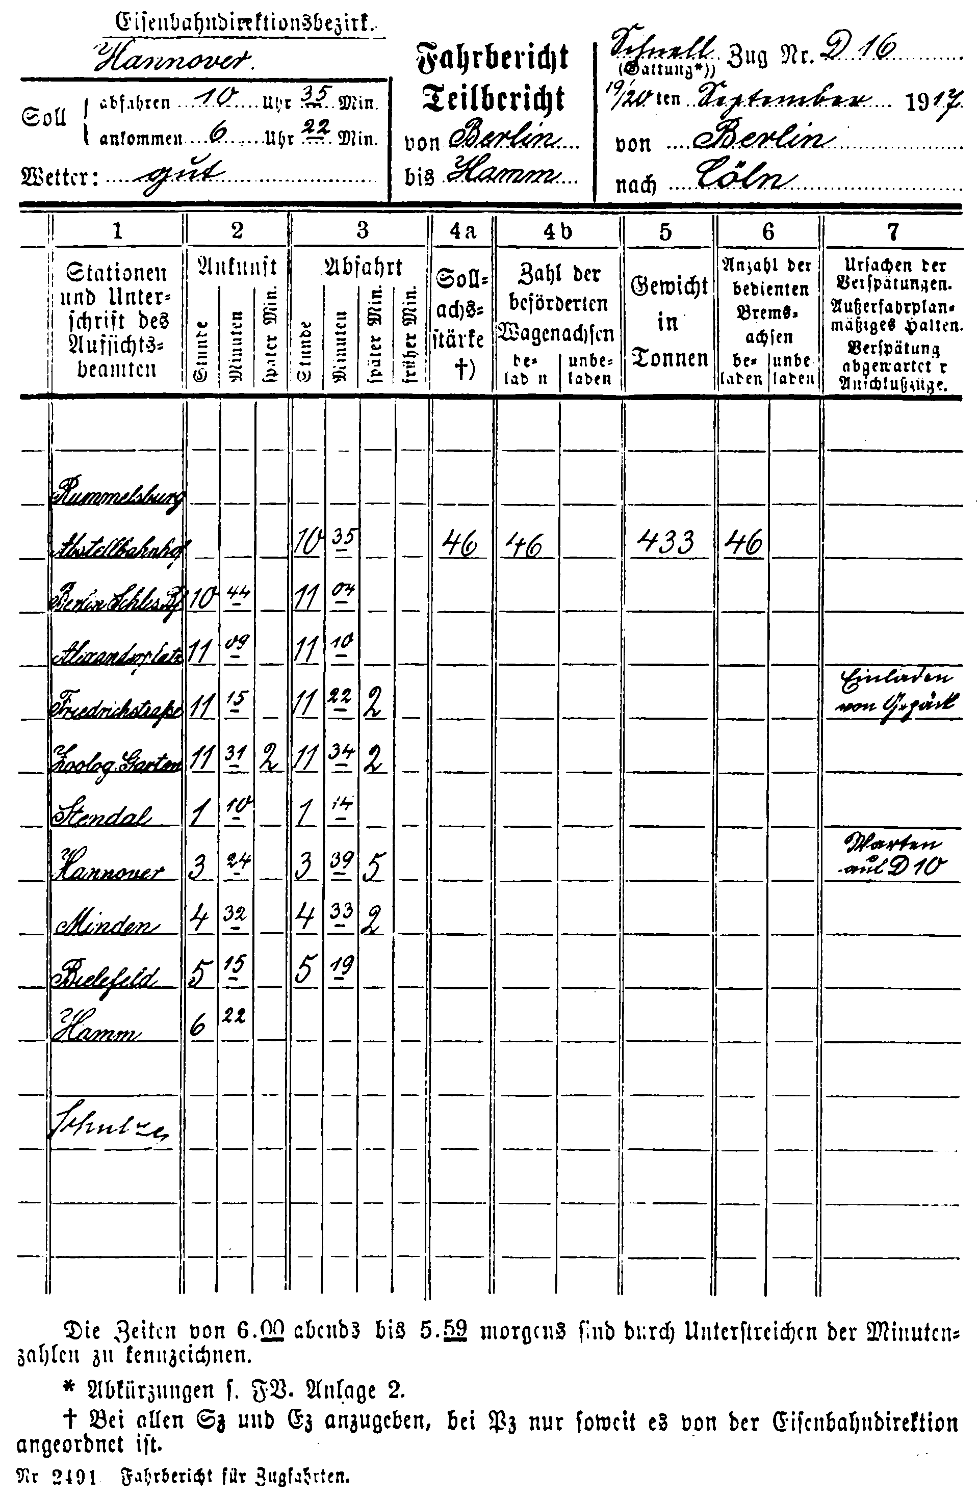 Eisenbahndirektionsbezirk.
Hannover.
Soll
abfahren 10 Uhr 35 Min.
ankommen 6 Uhr 22 Min.
Wetter: gut
Fahrbericht
Teilbericht
von Berlin
bis Hamm
Schnell Zug Nr. D 16
(Gattung*))
19/20 ten September 1917
von Berlin
nach Cöln
1 2 3 4a 4b 5 6 7
Stationen
und Unter-
schrift des
Aufsichts-
beamten
Ankunft
Stunde
Minuten
später Min.
Abfahrt
Stunde
Minuten
später Min.
früher Min.
Soll-
achs-
stärke
†)
Zahl der
beförderten
Wagenachsen
be-
lad n
unbe-
laden
Gewicht
in
Tonnen
Anzahl der
bedienten
Brems-
achsen
be-
laden
unbe
laden
Ursachen der
Verspätungen.
Außerfahrplan-
mäßiges Halten.
Verspätung
abgewartet r
Anschlußzüge.
Rummelsburg
Abstellbahnhof 10 35 46 46 433 46
Berlin Schles. Bf 10 44 11 04
Alexanderplatz 11 09 11 10
Friedrichstraße 11 15 11 22 2 Einladen
von Gepäck
Zoolog. Garten 11 31 2 11 34 2
Stendal 1 10 1 14
Hannover 3 24 3 39 5 Warten
auf D 10
Minden 4 32 4 33 2
Bielefeld 5 15 5 19
Hamm 6 22
Schulze
Die Zeiten von 6.00 abends bis 5.59 morgens sind durch Unterstreichen der Minuten-
zahlen zu kennzeichnen.
* Abkürzungen s. FV. Anlage 2.
† Bei allen Sz und Ez anzugeben, bei Pz nur soweit es von der Eisenbahndirektion
angeordnet ist.
Nr 2491 Fahrbericht für Zugfahrten.